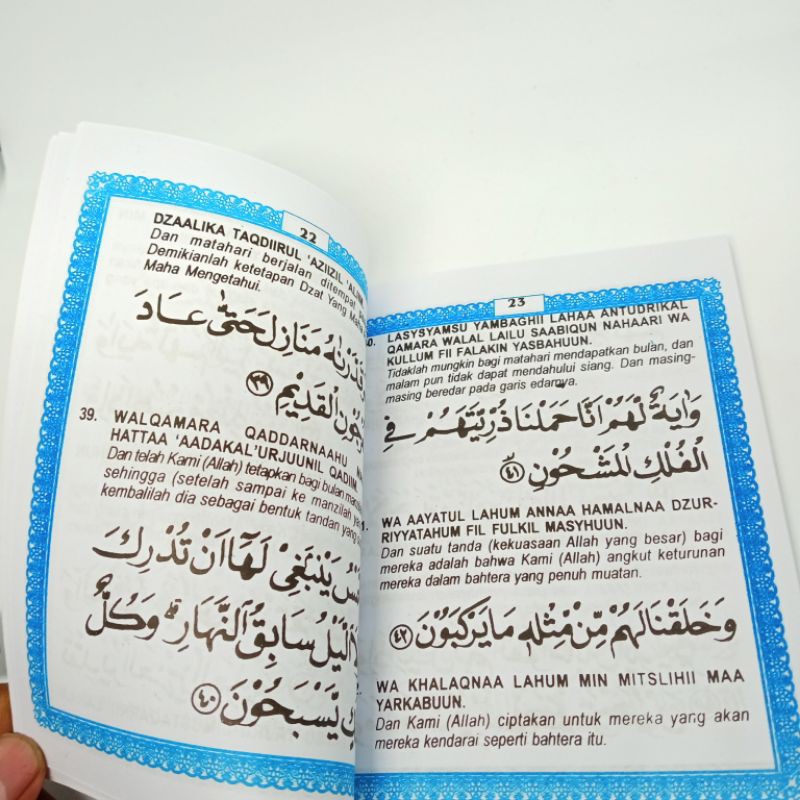 22
DZAALIKA TAQDIIRUL 'AZIIZIL 'ALIIM
Dan matahari berjalan ditempat
Demikianlah ketetapan Dzat Yang
Maha Mengetahui.
قَدَّرْنٰهُ مَنَازِلَ حَتّٰى عَادَ
الْقَدِيْمِ ٣٩
39. WALQAMARA QADDARNAAHU
HATTAA 'AADAKAL'URJUUNIL QADIIM
Dan telah Kami (Allah) tetapkan bagi bulan
sehingga (setelah sampai ke manzilah
kembalilah dia sebagai bentuk tandan yang
يَنْۢبَغِيْ لَهَآ اَنْ تُدْرِكَ
الَّيْلُ سَابِقُ النَّهَارِ ۗ وَكُلٌّ
يَّسْبَحُوْنَ ٤٠
23
LASYSYAMSU YAMBAGHII LAHAA ANTUDRIKAL
QAMARA WALAL LAILU SAABIQUN NAHAARI WA
KULLUM FII FALAKIN YASBAHUUN.
Tidaklah mungkin bagi matahari mendapatkan bulan, dan
malam pun tidak dapat mendahului siang. Dan masing-
masing beredar pada garis edarnya.
وَاٰيَةٌ لَّهُمْ اَنَّا حَمَلْنَا ذُرِّيَّتَهُمْ فِى
الْفُلْكِ الْمَشْحُوْنِ ٤١
WA AAYATUL LAHUM ANNAA HAMALNAA DZUR-
RIYYATAHUM FIL FULKIL MASYHUUN.
Dan suatu tanda (kekuasaan Allah yang besar) bagi
mereka adalah bahwa Kami (Allah) angkut keturunan
mereka dalam bahtera yang penuh muatan.
وَخَلَقْنَا لَهُمْ مِّنْ مِّثْلِهٖ مَا يَرْكَبُوْنَ ٤٢
WA KHALAQNAA LAHUM MIN MITSLIHII MAA
YARKABUUN.
Dan Kami (Allah) ciptakan untuk mereka yang akan
mereka kendarai seperti bahtera itu.